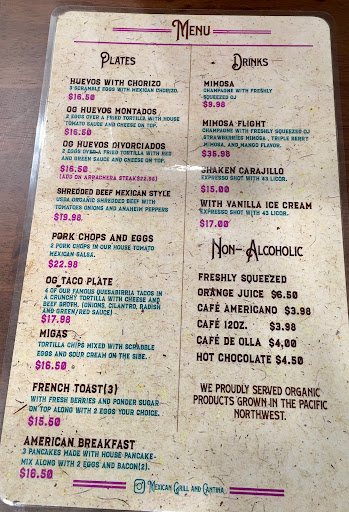 Menu
Plates
HUEVOS WITH CHORIZO
3 SCRAMBLE EGGS WITH MEXICAN CHORIZO.
$16.50
OG HUEVOS MONTADOS
2 EGGS OVER A FRIED TORTILLA WITH HOUSE
TOMATO SAUCE AND CHEESE ON TOP.
$16.50
OG HUEVOS DIVORCIADOS
2 EGGS OVER A FRIED TORTILLA WITH RED
AND GREEN SAUCE AND CHEESE ON TOP.
$16.50
(ADD ON ARRACHERA STEAK$22.98)
SHREDDED BEEF MEXICAN STYLE
USDA ORGANIC SHREDDED BEEF WITH
TOMATOES ONIONS AND ANAHEIM PEPPERS
$19.98
PORK CHOPS AND EGGS
2 PORK CHOPS IN OUR HOUSE TOMATO
MEXICAN SALSA.
$22.98
OG TACO PLATE
4 OF OUR FAMOUS QUESABIRRIA TACOS IN
A CRUNCHY TORTILLA WITH CHEESE AND
BEEF BROTH. (ONIONS, CILANTRO, RADISH
AND GREEN/RED SAUCE)
$17.98
MIGAS
TORTILLA CHIPS MIXED WITH SCRABLE
EGGS AND SOUR CREAM ON THE SIDE.
$16.50
FRENCH TOAST(3)
WITH FRESH BERRIES AND PONDER SUGAR
ON TOP ALONG WITH 2 EGGS YOUR CHOICE.
$15.50
AMERICAN BREAKFAST
3 PANCAKES MADE WITH HOUSE PANCAKE
MIX ALONG WITH 2 EGGS AND BACON(2).
$16.50
Drinks
MIMOSA
CHAMPAGNE WITH FRESHLY
SQUEEZED OJ
$9.98
MIMOSA FLIGHT
CHAMPAGNE WITH FRESHLY SQUEEZED OJ
STRAWBERRIES MIMOSA, TRIPLE BERRY
MIMOSA, AND MANGO FLAVOR.
$35.98
SHAKEN CARAJILLO
ESPRESSO SHOT WITH 43 LICOR.
$15.00
WITH VANILLA ICE CREAM
ESPRESSO SHOT WITH 43 LICOR.
$17.00
Non-Alcoholic
FRESHLY SQUEEZED
ORANGE JUICE $6.50
CAFÉ AMERICANO $3.98
CAFÉ 12OZ. $3.98
CAFÉ DE OLLA $4,00
HOT CHOCOLATE $4.50
WE PROUDLY SERVED ORGANIC
PRODUCTS GROWN IN THE PACIFIC
NORTHWEST.
Mexican Grill and Cantina